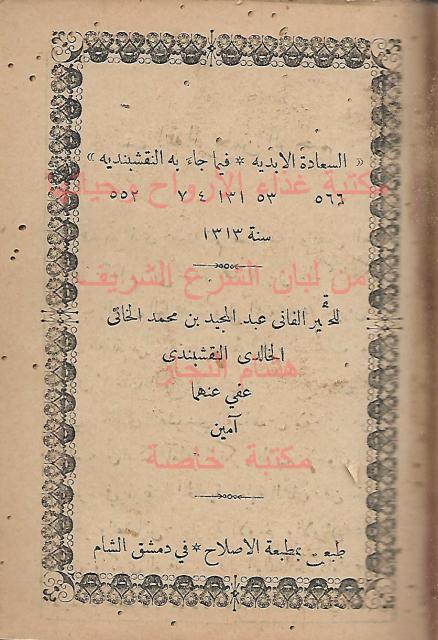 « السعادة الابديه * فيما جاء به النقشبنديه »
مكتبة غذاء الأرواح وحياتها
٥٦٦ ٥٣ ١٣١ ٤ ٧ ٥٥٢
سنة ١٣١٣
من لبان الشرع الشريف
للحقير الفانى عبد المجيد بن محمد الخانى
الخالدى النقشبندى
هشام النجار
عفي عنهما
آمين
مكتبة خاصة
طبعت بمطبعة الاصلاح * في دمشق الشام